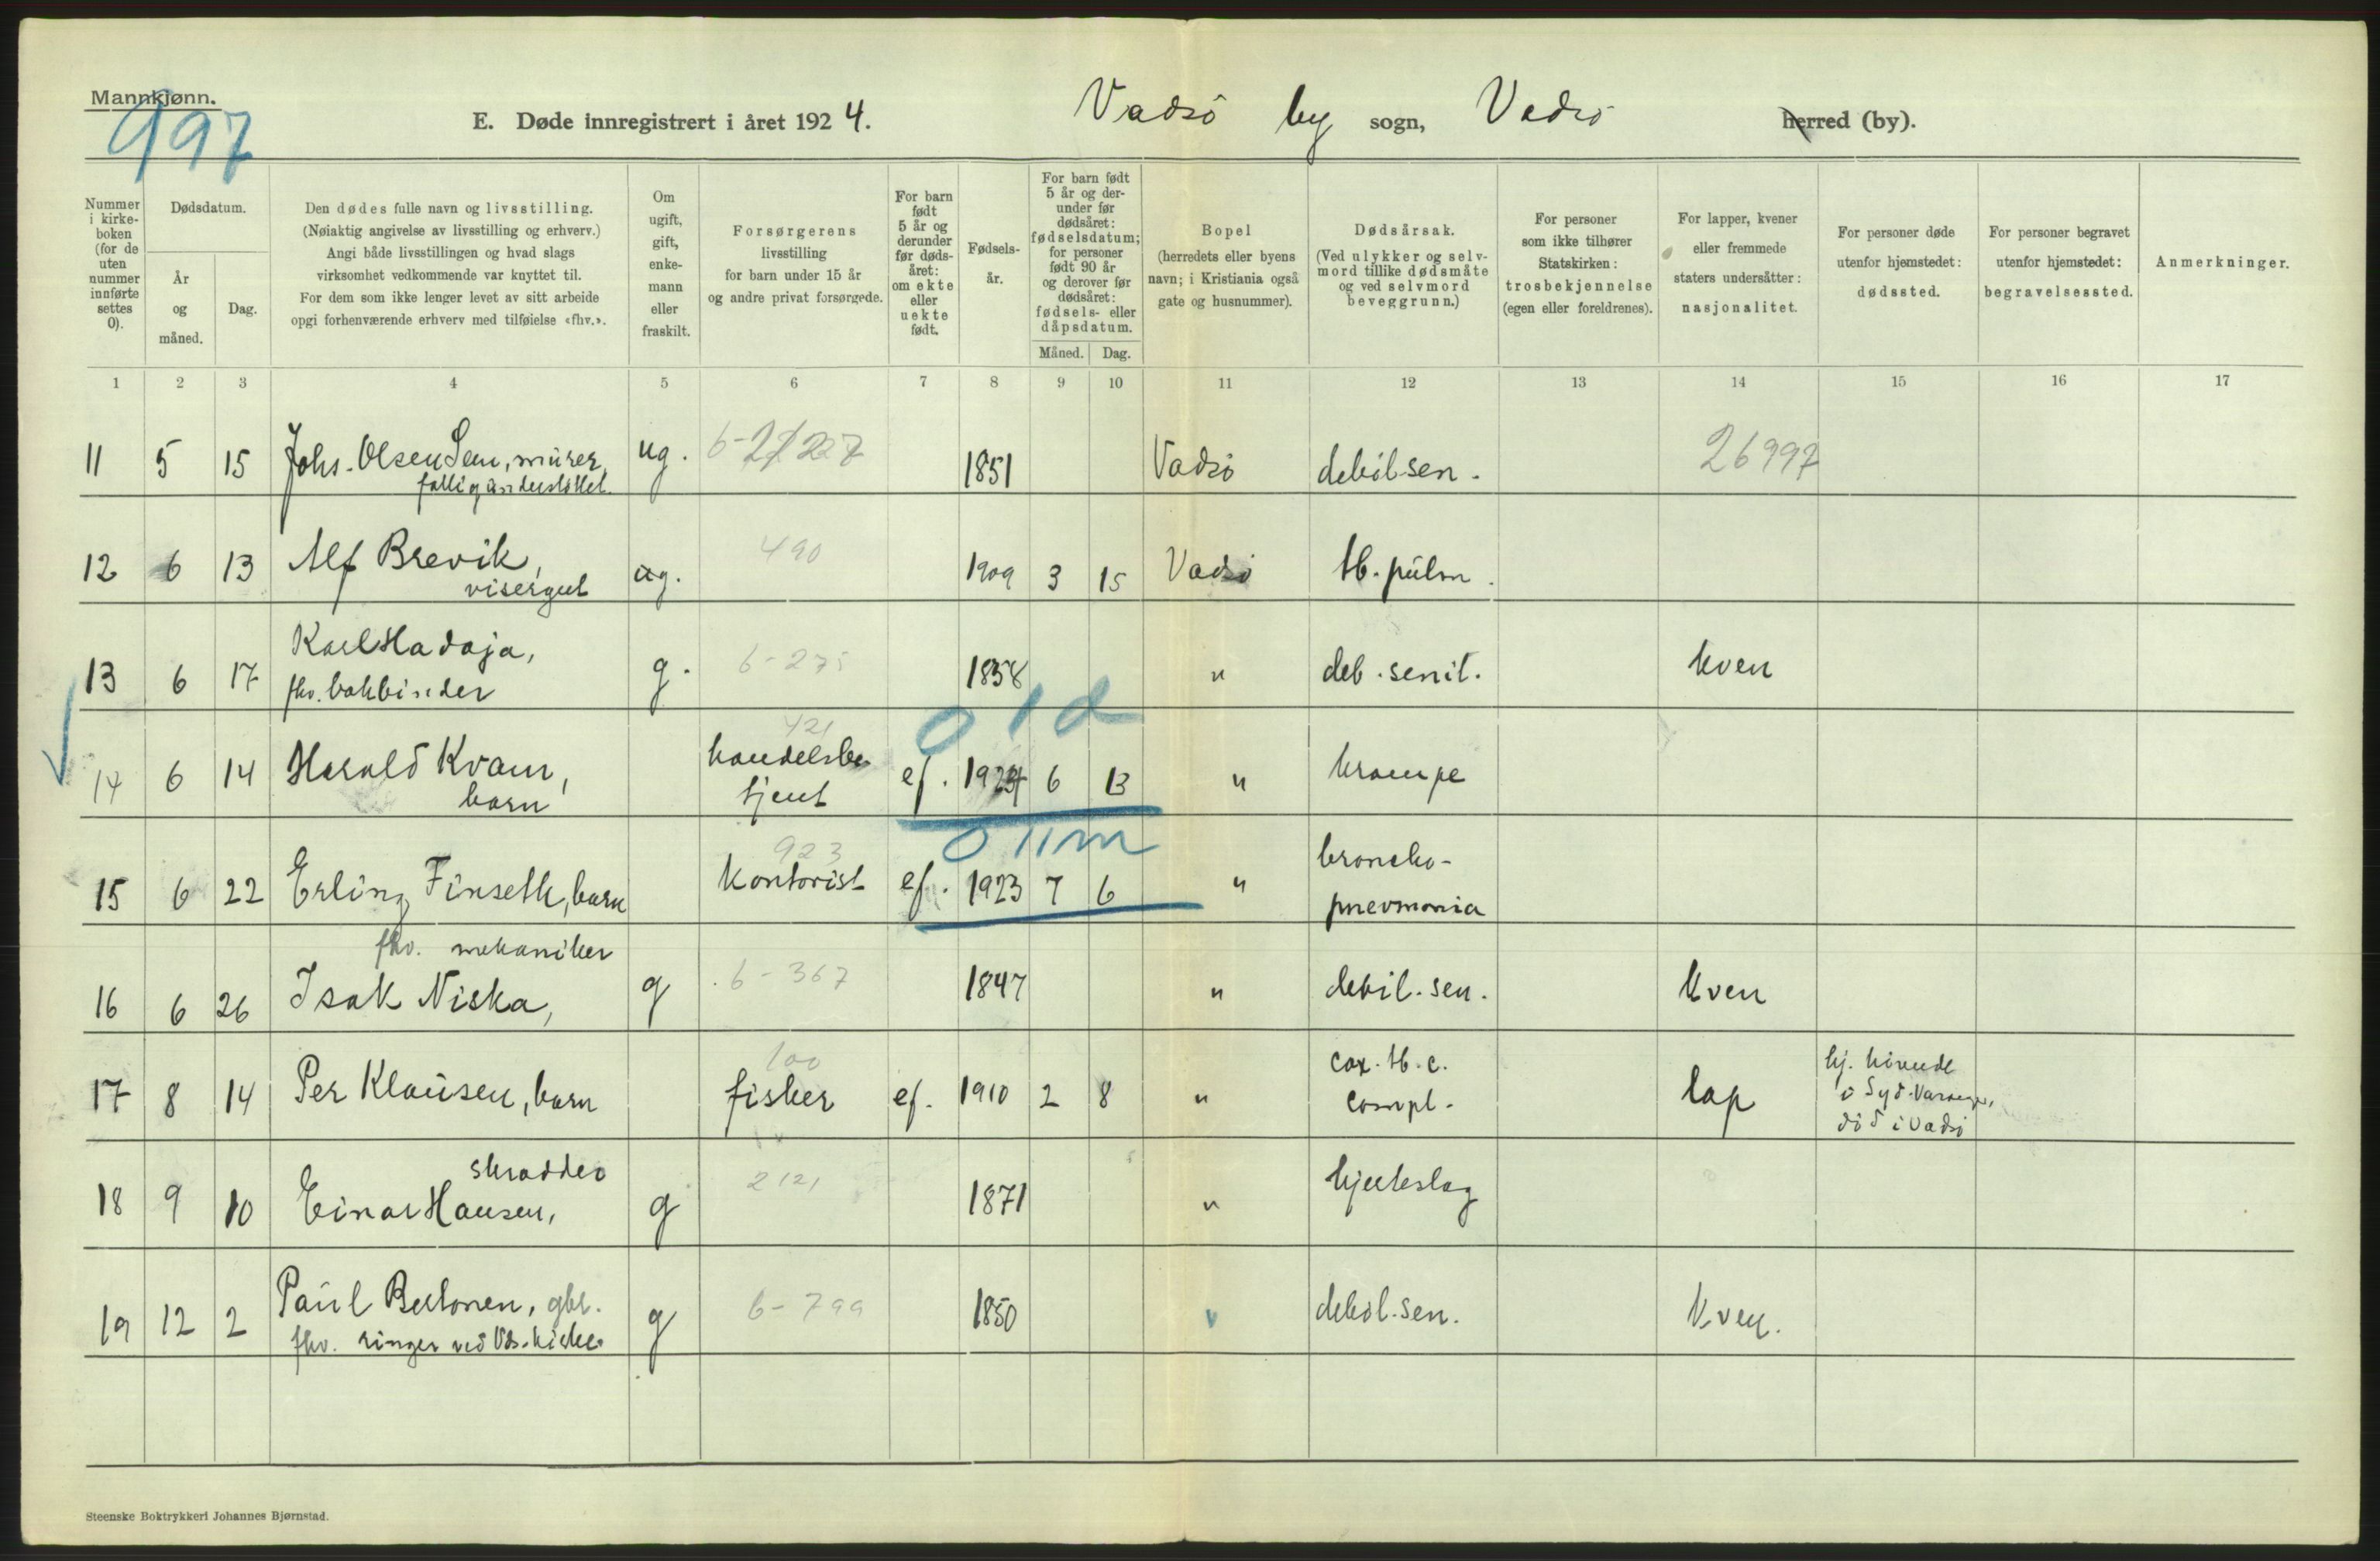 Mannkjønn.
997
E. Døde innregistrert i året 1924. Vadsö by sogn, Vadsö herred (by).
Nummer i kirkeboken (for de uten nummer innførte settes 0).
Dødsdatum.
År og måned.
Dag.
Den dødes fulle navn og livsstilling.
(Nøiaktig angivelse av livsstilling og erhverv.)
Angi både livsstillingen og hvad slags
virksomhet vedkommende var knyttet til.
For dem som ikke lenger levet av sitt arbeide
opgi forhenværende erhverv med tilføielse «fhv.».
Om ugift, gift, enkemann eller fraskilt.
Forsørgerens
livsstilling
for barn under 15 år
og andre privat forsørgede.
For barn født 5 år og derunder før dødsåret: om ekte eller uekte født.
Fødselsår.
For barn født 5 år og derunder før dødsåret: fødselsdatum; for personer født 90 år og derover før dødsåret: fødsels- eller dåpsdatum.
Måned. Dag.
Bopel
(herredets eller byens
navn; i Kristiania også
gate og husnummer).
Dødsårsak.
(Ved ulykker og selvmord tillike dødsmåte og ved selvmord beveggrunn.)
For personer
som ikke tilhører
Statskirken:
trosbekjennelse
(egen eller foreldrenes).
For lapper, kvener
eller fremmede
staters undersåtter:
nasjonalitet.
For personer døde
utenfor hjemstedet:
dødssted.
For personer begravet
utenfor hjemstedet:
begravelsessted.
Anmerkninger.
1 2 3 4 5 6 7 8 9 10 11 12 13 14 15 16 17
11 5 15 Johs. Olsen Sem, murer, ug. 1851 Vadsö debil sen. 26997
fattigunderstöttet.
12 6 13 Alf Brevik, ug. 490 1909 3 15 Vadsö tb. pulm.
visergut
13 6 17 Karl Hadaja, g. 6-275 1838 " deb. senil. kven
fhv. bokbinder
0 1 d
421
14 6 14 Harald Kvam, handelsbe ef. 1924 6 13 " krampe
barn tjent
0 11 m
923
15 6 22 Erling Finseth, barn kontorist ef. 1923 7 6 " broncho-
pnevmonia
fhv. mekaniker
16 6 26 Isak Niska, g 6-367 1847 " debil. sen. kven
100
17 8 14 Per Klausen, barn fisker ef. 1910 2 8 " cox. tb. c. lap
compl.
hj. hörende
i Syd-Varanger,
död i Vadsö
skrædder
18 9 10 Einar Hansen, g 2121 1871 " hjerteslag
19 12 2 Paul Bertonen, gbr. g 6-799 1850 " debil. sen. Kven.
fhv. ringer ved Vds. kirke
Steenske Boktrykkeri Johannes Bjørnstad.